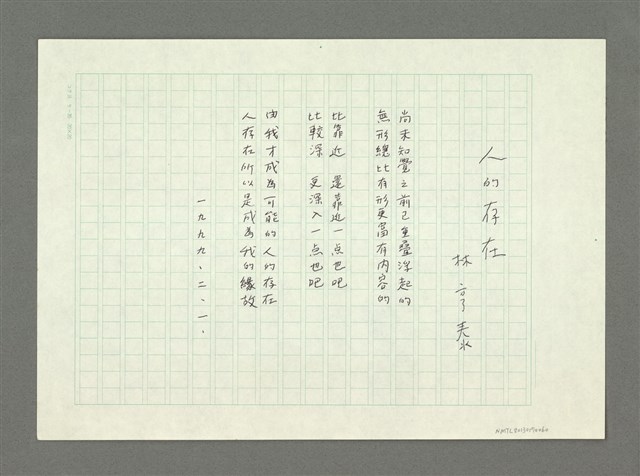 人的存在
林亨泰
尚未知覺之前已重疊浮起的
無形總比有形更富有内容的
比靠近 還靠近一点也吧
比較深 更深入一点也吧
由我才成為可能的人的存在
人存在所以是成為我的緣故
一九九九、二、一.